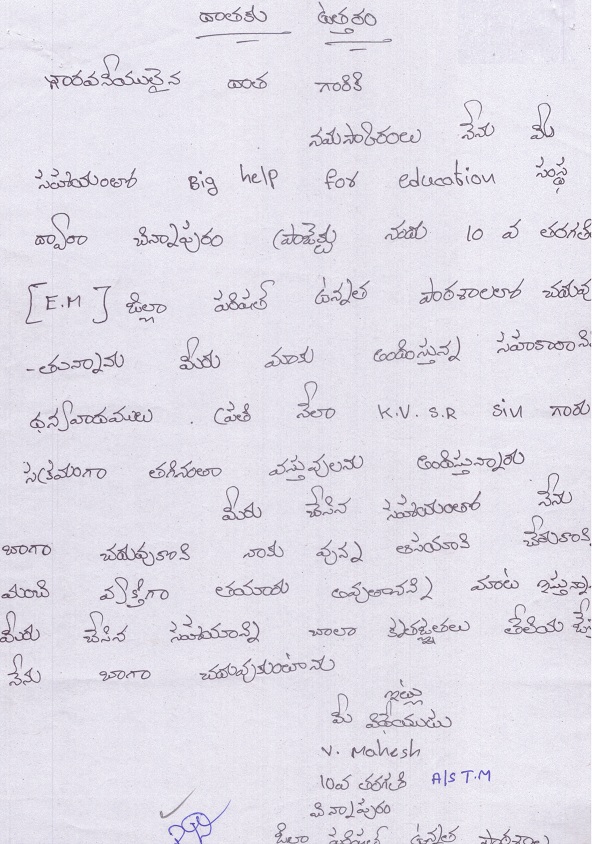 దాతకు ఉత్తరం
గౌరవనీయులైన దాత గారికి
నమస్కారంలు నేను మీ
సహాయంతో Big help for education సంస్థ
ద్వారా చిన్నాపురం ప్రాజెక్టు నందు 10 వ తరగతి
[E.M] జిల్లా పరిషత్ ఉన్నత పాఠశాలలో చదువు
-తున్నాను మీరు మాకు అందిస్తున్న సహకారానికి
ధన్యవాదములు . ప్రతి నెలా K.V.S.R Sir గారు
సక్రమంగా తగినంతా వస్తువులను అందిస్తున్నారు
మీరు చేసిన సహాయంతో నేను
బాగా చదువుకొని నాకు వున్న ఆసయాకి చేరుకొని
మంచి వ్యక్తిగా తయారు అవుతానని మాట ఇస్తున్నా
మీరు చేసిన సహాయాన్ని చాలా కృతజ్ఞతలు తేలియ చేస్త
నేను బాగా చదువుకుంటాను
ఇట్లు
మీ విధేయుడు
V. Mahesh
10వ తరగతి A/S T.M
చిన్నాపురం
జిలా పరిషత్ ఉన్నత పాఠశాల